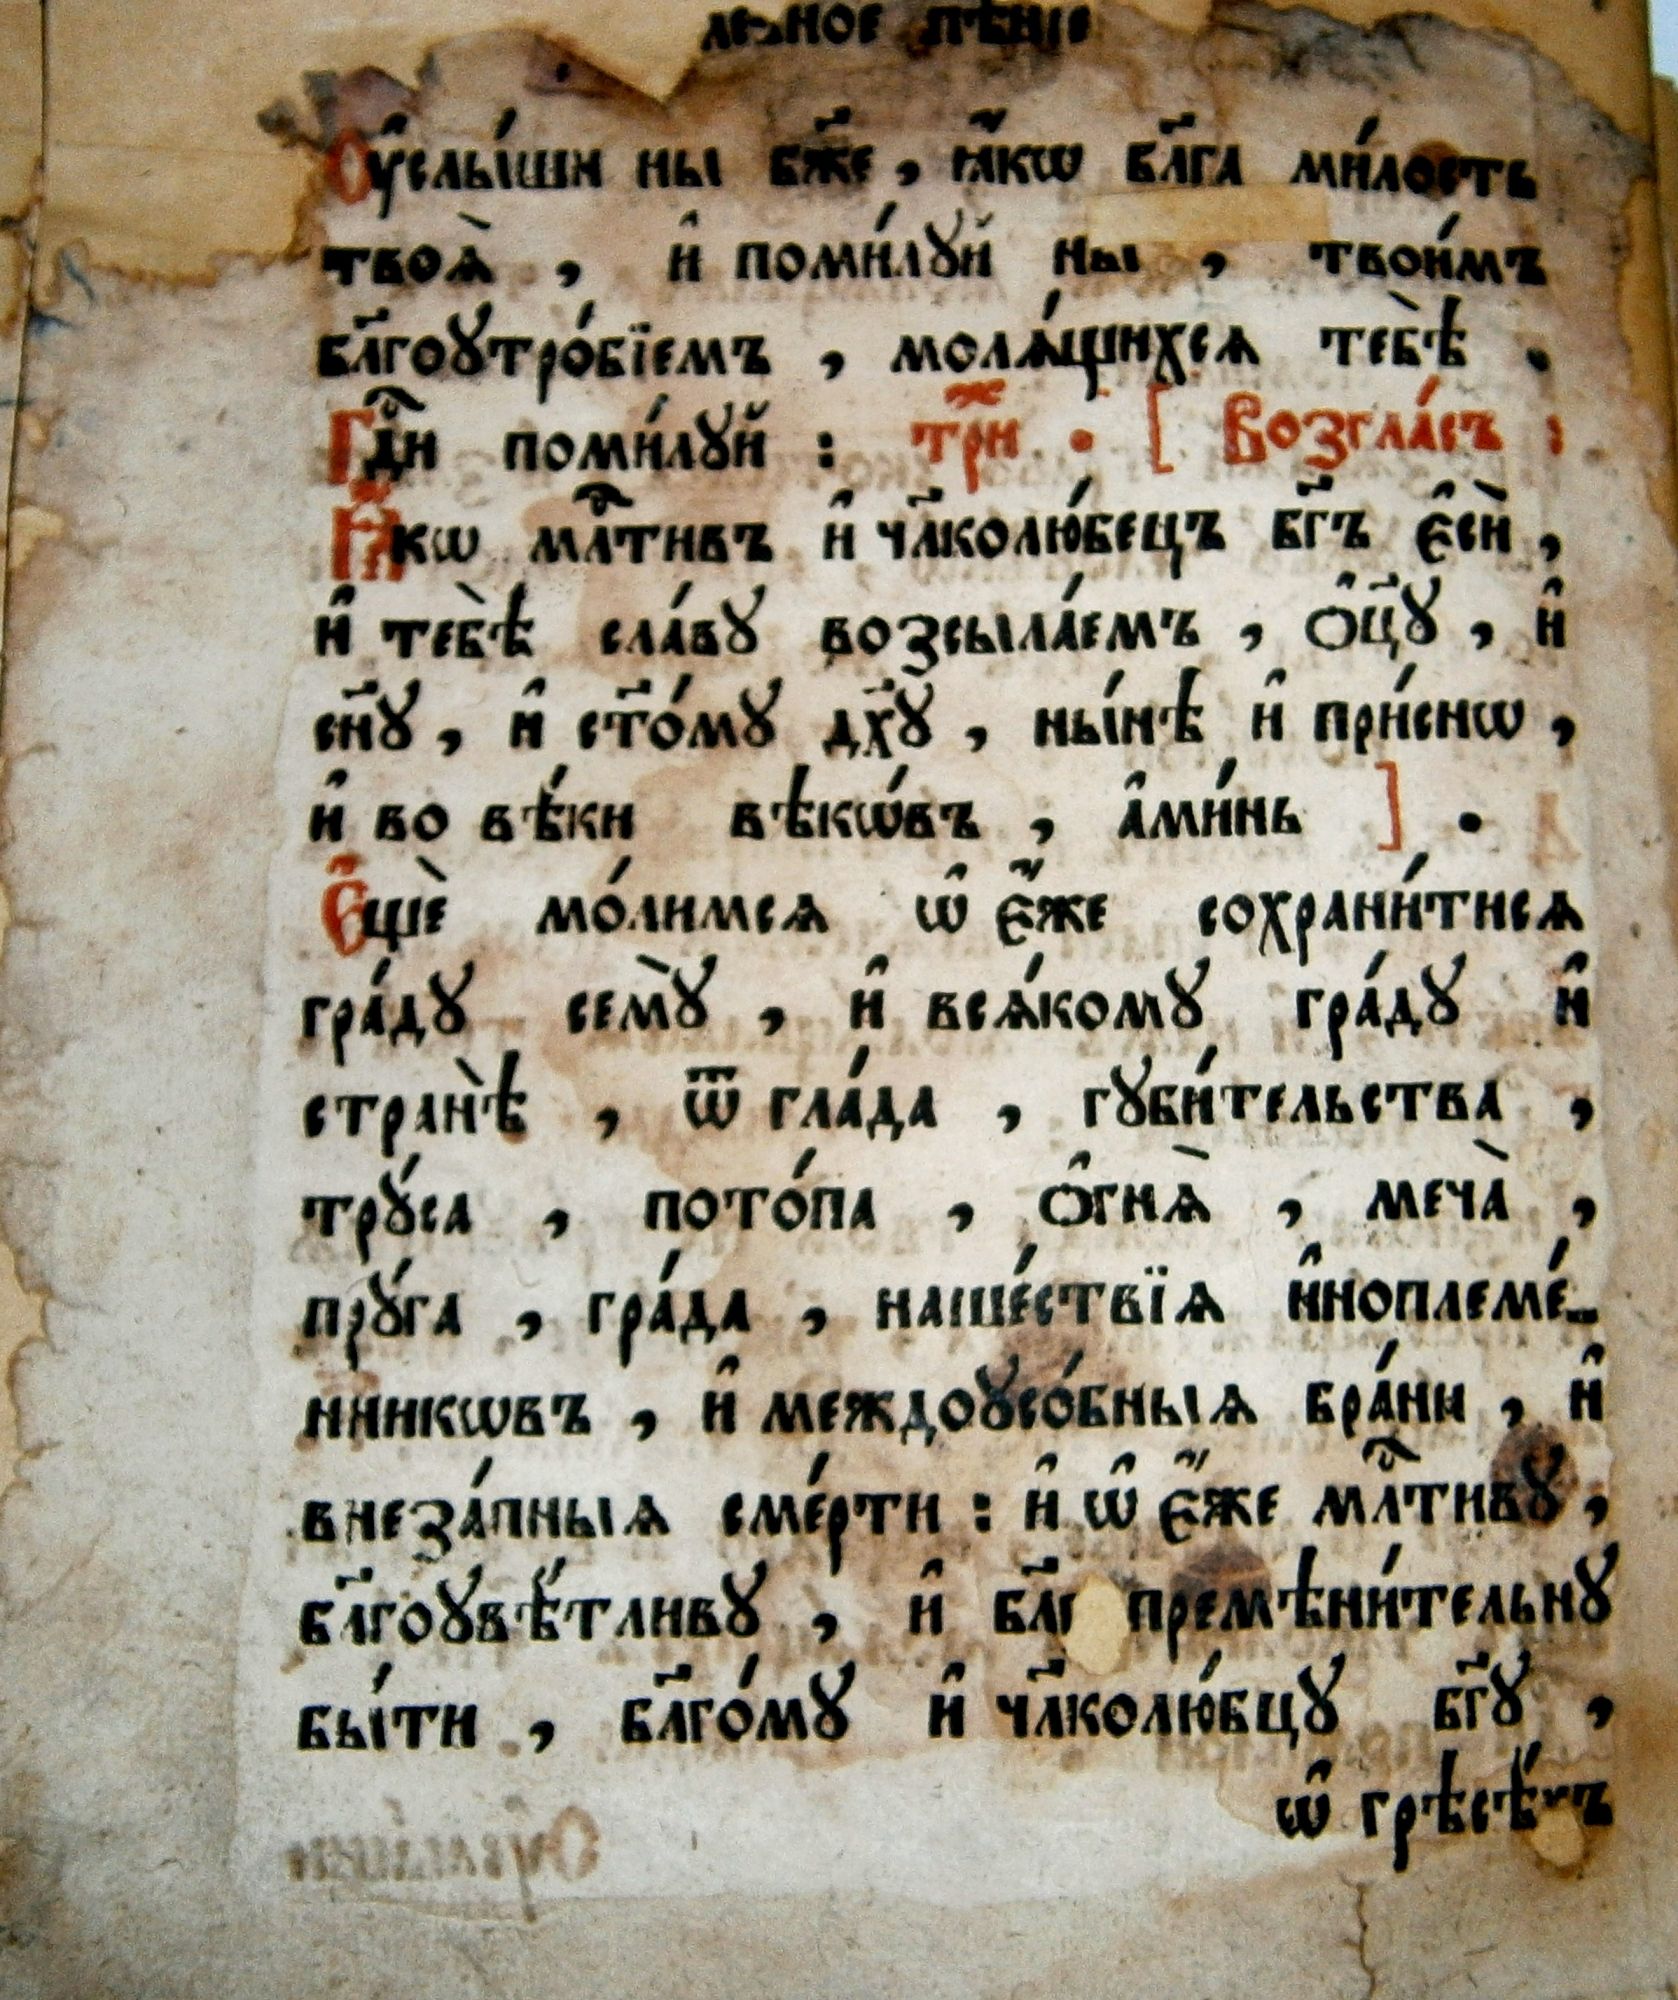 пѣнїе
Оу҆слы́ши ны бж҃е, ꙗ҆́кѡ бл҃га ми́лость
твоѧ̀, и҆ поми́лꙋй ны, твои́мъ
бл҃гоꙋтро́бїемъ, молѧ́щихсѧ тебѣ̀.
Гдⷭ҇и поми́лꙋй: три́ж. [Возгла́съ:
Ꙗ҆́кѡ млⷭ҇тивъ и҆ чл҃колю́бецъ бг҃ъ є҆сѝ,
и҆ тебѣ̀ сла́вꙋ возсыла́емъ, ѻ҆ц҃ꙋ̀, и҆
сн҃ꙋ, и҆ ст҃о́мꙋ дх҃ꙋ, ны́нѣ и҆ при́снѡ,
и҆ во вѣ́ки вѣкѡ́въ, а҆ми́нь].
Є҆щѐ мо́лимсѧ ѡ҆ є҆́же сохрани́тисѧ
гра́дꙋ семꙋ̀, и҆ всѧ́комꙋ гра́дꙋ и҆
странѣ̀, ѿ гла́да, гꙋби́тельства,
трꙋ́са, пото́па, ѻ҆гнѧ̀, меча̀,
прꙋ́га, гра́да, наше́ствїѧ и҆ноплеме́-
нникѡвъ, и҆ междоꙋсо́бныѧ бра́ни, и҆
внеза́пныѧ сме́рти: и҆ ѡ҆ є҆́же млⷭ҇тивꙋ,
бл҃гоꙋвѣ́тливꙋ, и҆ премѣни́тельнꙋ
бы́ти, бл҃го́мꙋ и҆ чл҃колю́бцꙋ бг҃ꙋ,
ѡ҆ грѣсѣ́хъ